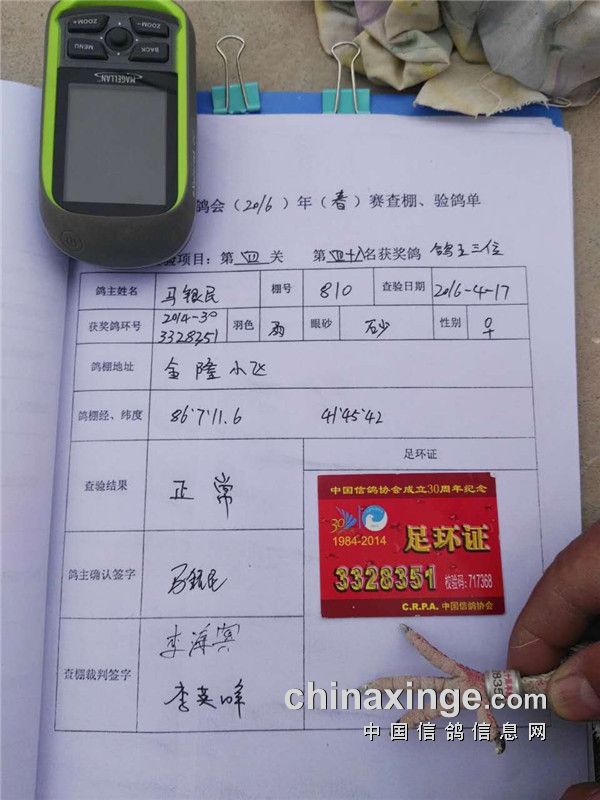 ZOOM+
ZOOM-
MENU
BACK
MAGELLAN
鸽会（2016）年（春）赛查棚、验鸽单
验项目：第四关 第四十八名获奖鸽 鸽主三位
鸽主姓名 马银民 棚号 810 查验日期 2016-4-17
获奖鸽环号 2014-30 3328351 羽色 雨 眼砂 砂 性别 ♀
鸽棚地址 金隆小区
鸽棚经、纬度 86°7'11.6 41°45'42
足环证
查验结果 正常
中国信鸽协会成立30周年纪念
30
1984-2014 足环证
3328351 校验码：717368
C.R.P.A. 中国信鸽协会
鸽主确认签字 马银民
查棚裁判签字 李海宾
李英峰
chinaxinge.com
中国信鸽信息网